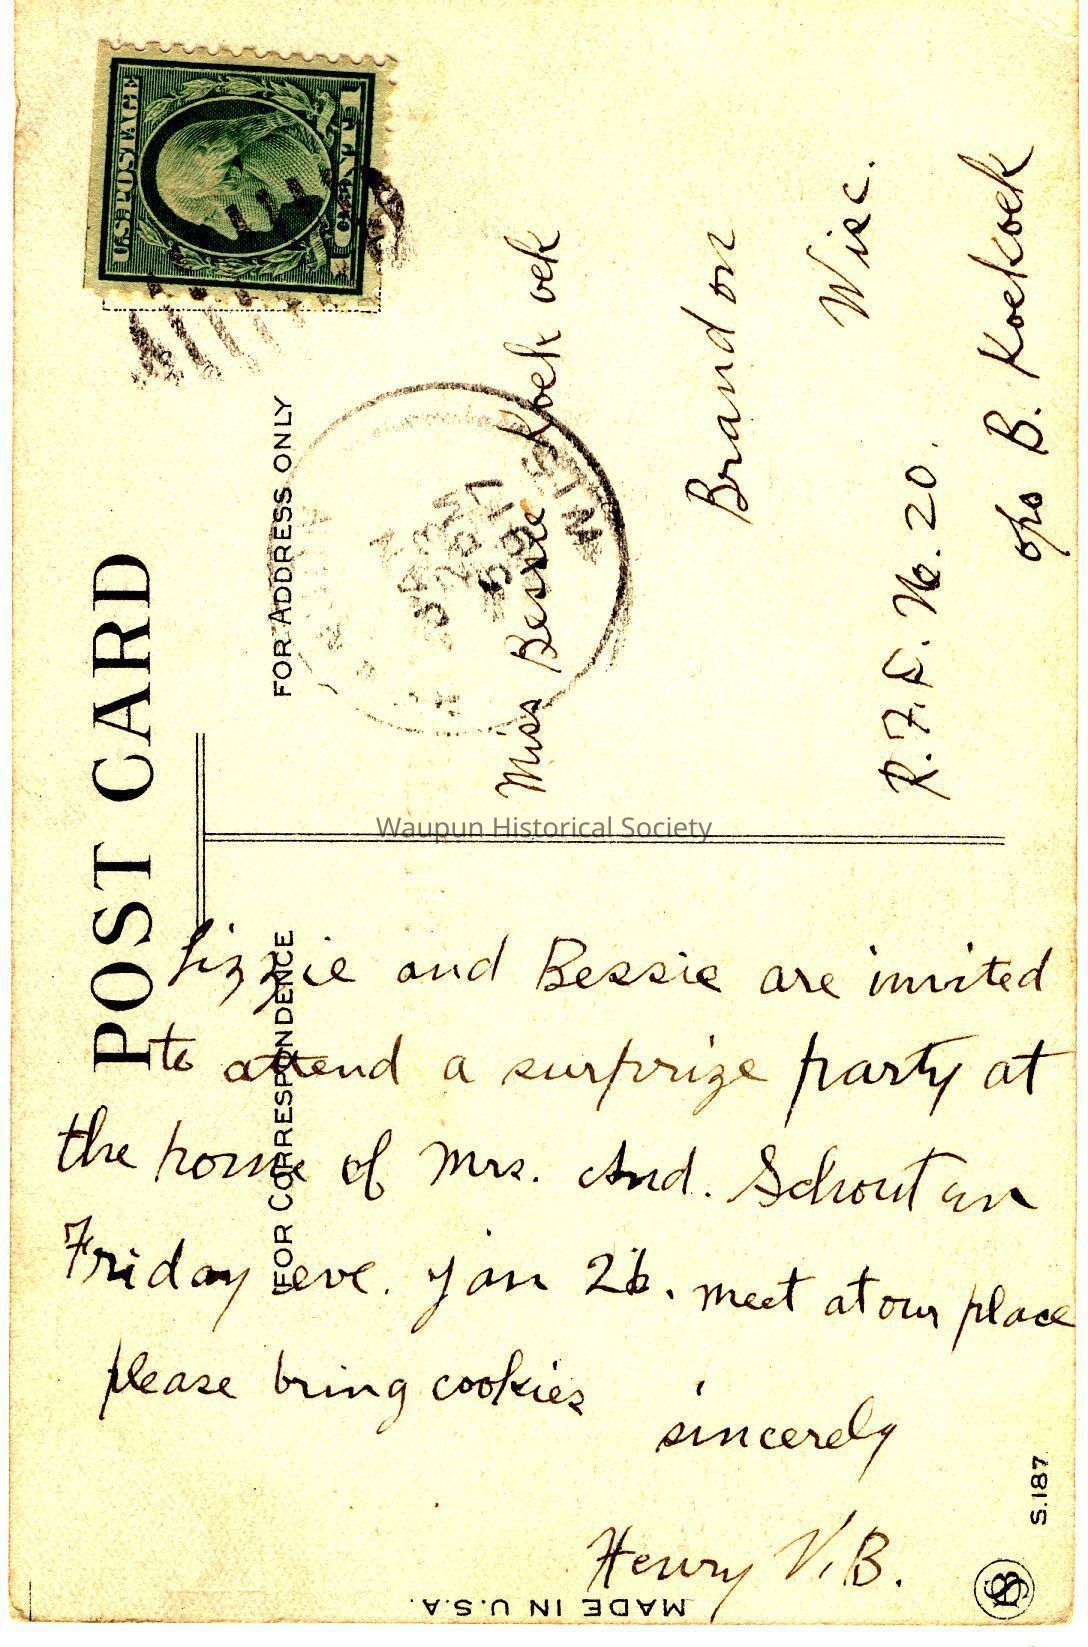 U.S. POSTAGE
POST CARD
FOR ADDRESS ONLY
WIS
JAN
1917
Miss Bessie Koekoek
Brandon
Wisc.
R. F. D. No. 20.
c/o B. Koekoek
Waupun Historical Society
FOR CORRESPONDENCE
Lizzie and Bessie are invited
to attend a surprize party at
the home of Mrs. And. Schouten
Friday eve. Jan 26. meet at our place
please bring cookies
sincerely
Henry V. B.
S.187
MADE IN U.S.A.